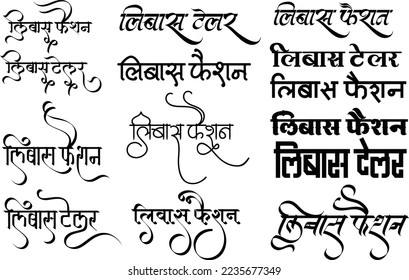 लिबास फैशन
लिबास टेलर
लिबास फैशन
लिबास टेलर
लिबास टेलर
लिबास फैशन
लिबास फैशन
लिबास फैशन
लिबास फैशन
लिबास टेलर
लिबास फैशन
लिबास फैशन
लिबास टेलर
लिबास फैशन
shutterstock.com · 2235677349